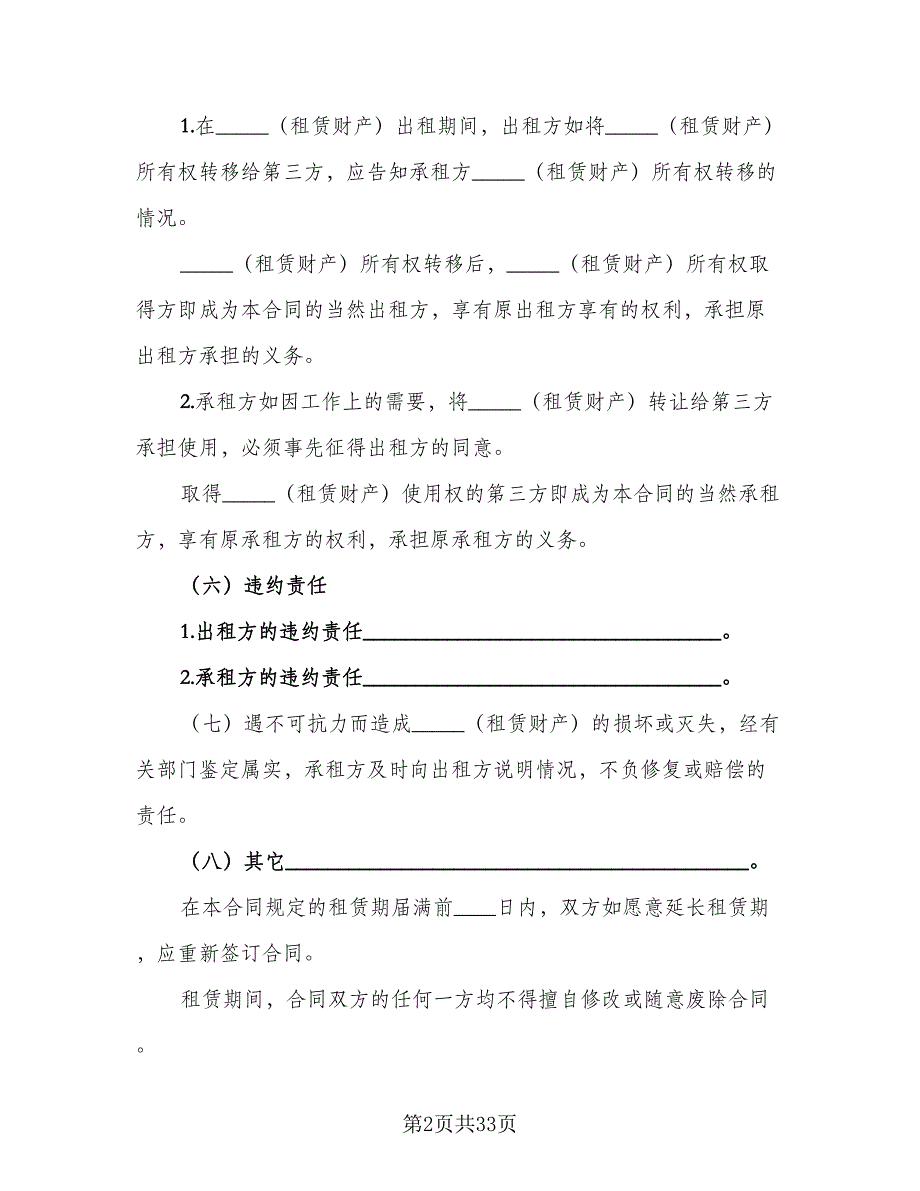 1.在_____（租赁财产）出租期间，出租方如将_____（租赁财产）
所有权转移给第三方，应告知承租方_____（租赁财产）所有权转移的
情况。
_____（租赁财产）所有权转移后，_____（租赁财产）所有权取
得方即成为本合同的当然出租方，享有原出租方享有的权利，承担原
出租方承担的义务。
2.承租方如因工作上的需要，将_____（租赁财产）转让给第三方
承担使用，必须事先征得出租方的同意。
取得_____（租赁财产）使用权的第三方即成为本合同的当然承租
方，享有原承租方的权利，承担原承租方的义务。
（六）违约责任
1.出租方的违约责任__________________________________。
2.承租方的违约责任__________________________________。
（七）遇不可抗力而造成_____（租赁财产）的损坏或灭失，经有
关部门鉴定属实，承租方及时向出租方说明情况，不负修复或赔偿的
责任。
（八）其它____________________________________________。
在本合同规定的租赁期届满前____日内，双方如愿意延长租赁期
，应重新签订合同。
租赁期间，合同双方的任何一方均不得擅自修改或随意废除合同
。
第2页共33页